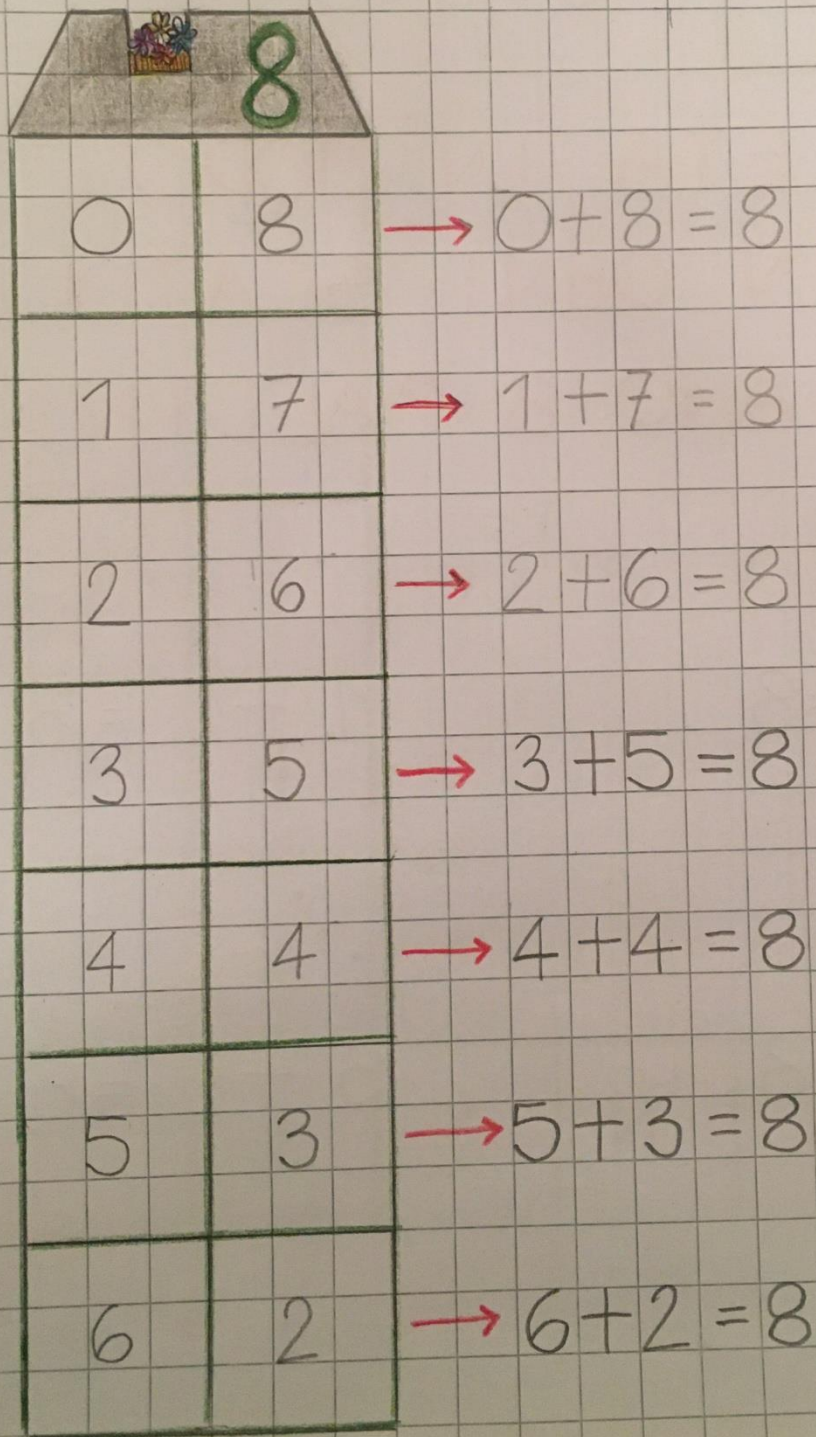 8
0 8 → 0+8=8
1 7 → 1+7=8
2 6 → 2+6=8
3 5 → 3+5=8
4 4 → 4+4=8
5 3 → 5+3=8
6 2 → 6+2=8